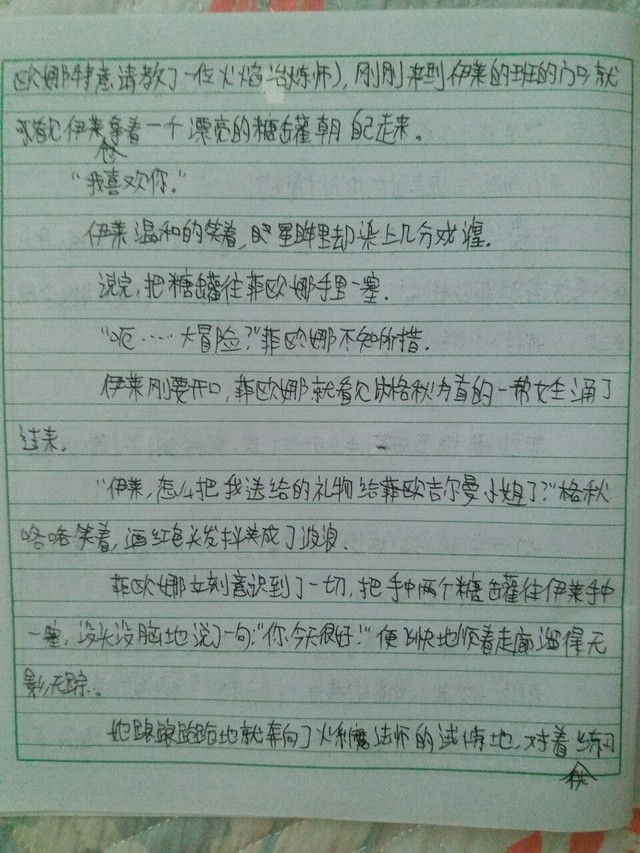 欧娜特意请教了一位火焰冶炼师），刚刚来到伊莱的班的门口就
看见伊莱拿着一个漂亮的糖罐朝自己走来。
“我喜欢你。”
伊莱温和的笑着，眼星眸里却染上几分戏谑。
说完，把糖罐往菲欧娜手里一塞。
“呃……大冒险？”菲欧娜不知所措。
伊莱刚要开口，菲欧娜就看见以格秋为首的一帮女生涌了
过来。
“伊莱，怎么把我送给的礼物给菲欧吉尔曼小姐了？”格秋
咯咯笑着，酒红色头发抖成了波浪。
菲欧娜立刻意识到了一切，把手中两个糖罐往伊莱手中
一塞，没头没脑地说了一句：“你今天很好！”便飞快地顺着走廊溜得无
影无踪。
她踉踉跄跄地就奔向了火系魔法师的试炼地，对着练习